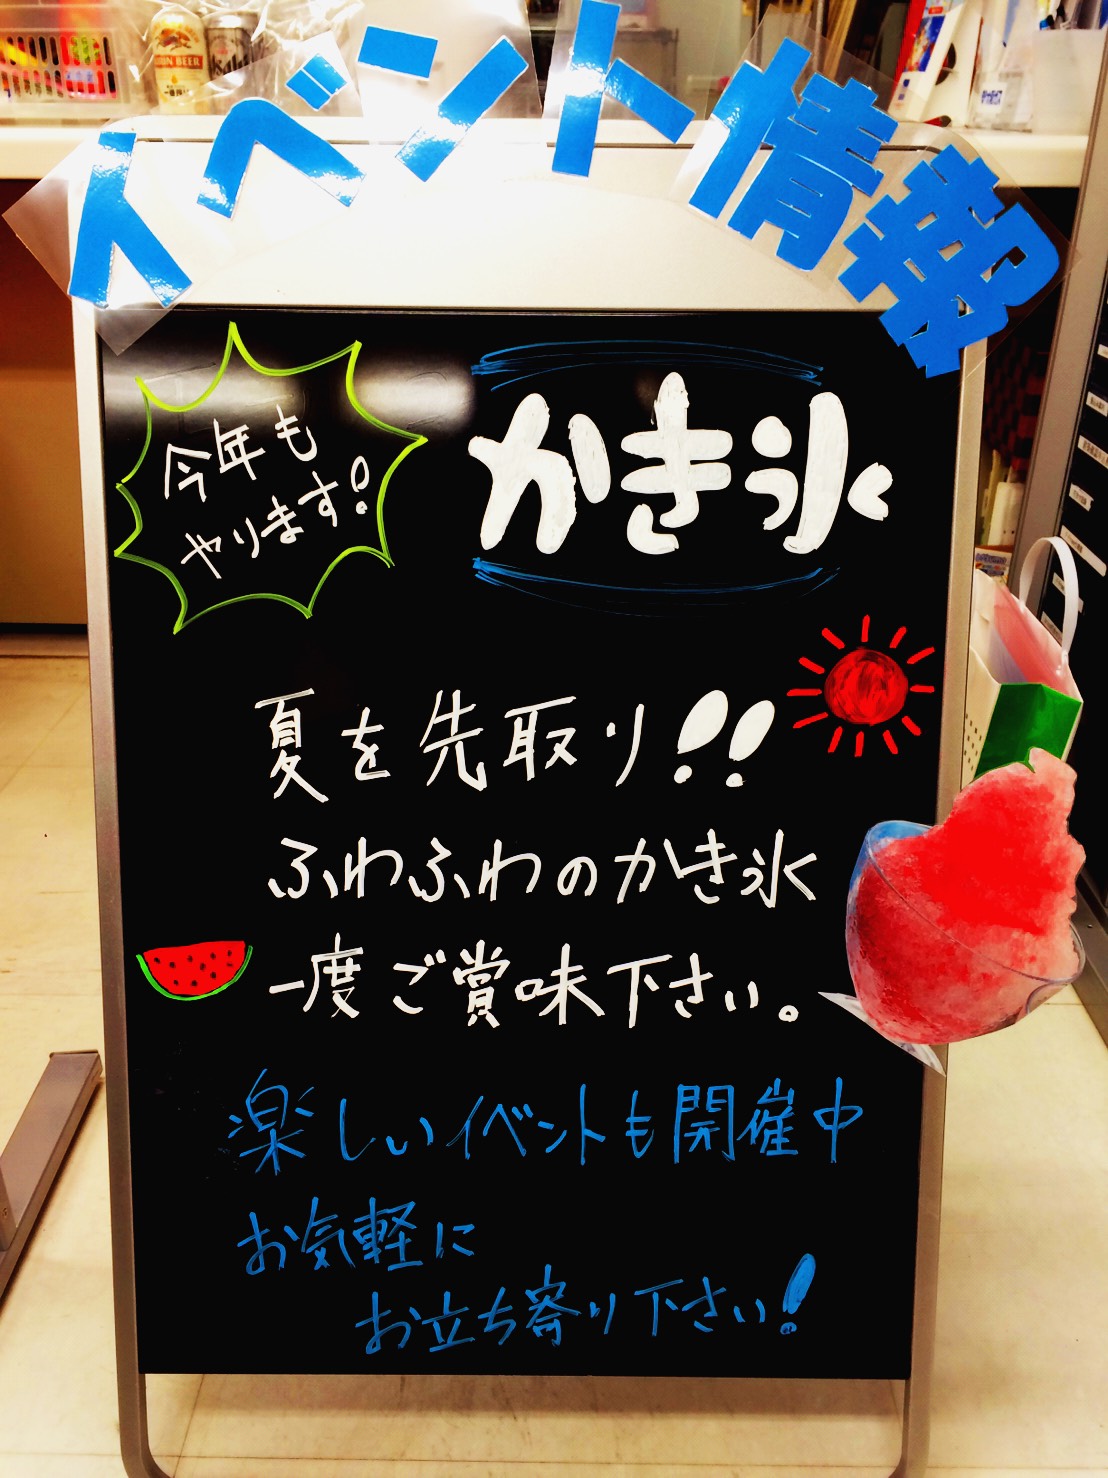 イベント情報
今年も
やります!
かき氷
夏を先取り!!
ふわふわのかき氷
一度ご賞味下さい。
楽しいイベントも開催中
お気軽に
お立ち寄り下さい!